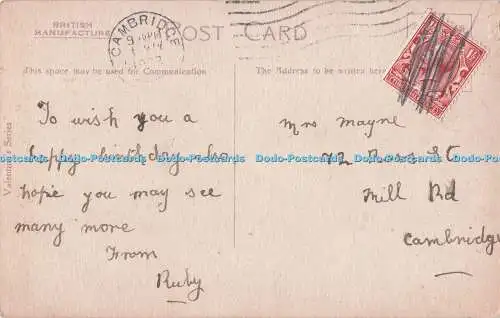 BRITISH
MANUFACTURE
POST CARD
CAMBRIDGE
This space may be used for Communication
The Address to be written here
Valentine's Series
To wish you a
happy birthday also
hope you may see
many more
From
Ruby
Mrs Mayne
72 Ross St
Mill Rd
Cambridge
Dodo-Postcards Dodo-Postcards Dodo-Postcards Dodo-Postcards Dodo-Postcards Dodo-Postcards